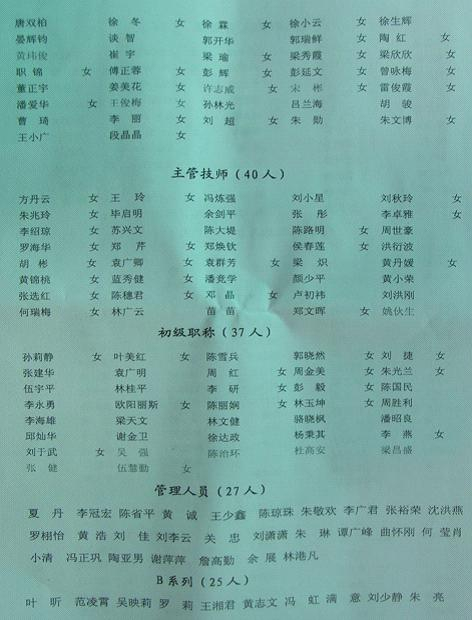 唐双柏 徐冬 女 徐霖 女 徐小云 女 徐生辉
晏辉钧 谈智 郭开华 郭瑞鲜 女 陶红 女
黄玮俊 崔宇 梁瑜 女 梁秀霞 女 梁欣欣 女
职锦 女 傅正蓉 女 彭辉 女 彭延文 女 曾咏梅 女
董正宇 姜美花 女 许志威 宋彬 女 雷俊霞 女
潘爱华 女 王俊梅 女 孙林光 吕兰海 胡骏
曹琦 李丽 女 刘超 女 朱勋 朱文博 女
王小广 段晶晶 女
主管技师(40人)
方丹云 女 王玲 女 冯炼强 刘小星 刘秋玲 女
朱兆玲 女 毕启明 余剑平 张彤 李卓雅 女
李绍琼 女 苏兴文 陈大堤 陈路明 女 周世豪
罗海华 女 郑芹 女 郑焕钦 侯春莲 女 洪衍波
胡彬 女 袁广卿 女 袁群芳 女 梁炽 黄丹媛 女
黄锦桃 女 蓝秀健 女 潘竞学 颜少平 黄小荣
张选红 女 陈穗君 女 邓晶 女 卢初祎 刘洪刚
何瑞梅 女 林广云 苗苗 郑文晖 女 姚伙生
初级职称(37人)
孙莉静 女 叶美红 女 陈雪兵 郭晓然 女 刘捷 女
张建华 袁广明 周红 女 周金美 女 朱光兰 女
伍宇平 林桂平 李研 女 彭毅 女 陈国民
李永勇 欧阳丽斯 女 陈丽娴 女 林玉坤 女 周胜利
李海雄 梁天文 林文健 骆晓枫 潘昭良
邱灿华 谢金卫 徐达政 杨秉其 李燕 女
刘于武 女 吴强 陈治环 杜高安 梁昌盛
张健 伍慧勤 女
管理人员(27人)
夏丹 李冠宏 陈省平 黄诚 王少鑫 陈琼珠 朱敬欢 李广君 张裕荣 沈洪燕
罗栩怡 黄浩 刘佳 刘李云 关忠 刘潇潇 朱琳 谭广峰 曲怀刚 何莹肖
小清 冯正巩 陶亚男 谢萍萍 詹高勤 余展 林港凡
B系列(25人)
叶听 范凌霄 吴映莉 罗莉 王湘君 黄志文 冯虹 满意 刘少静 朱亮